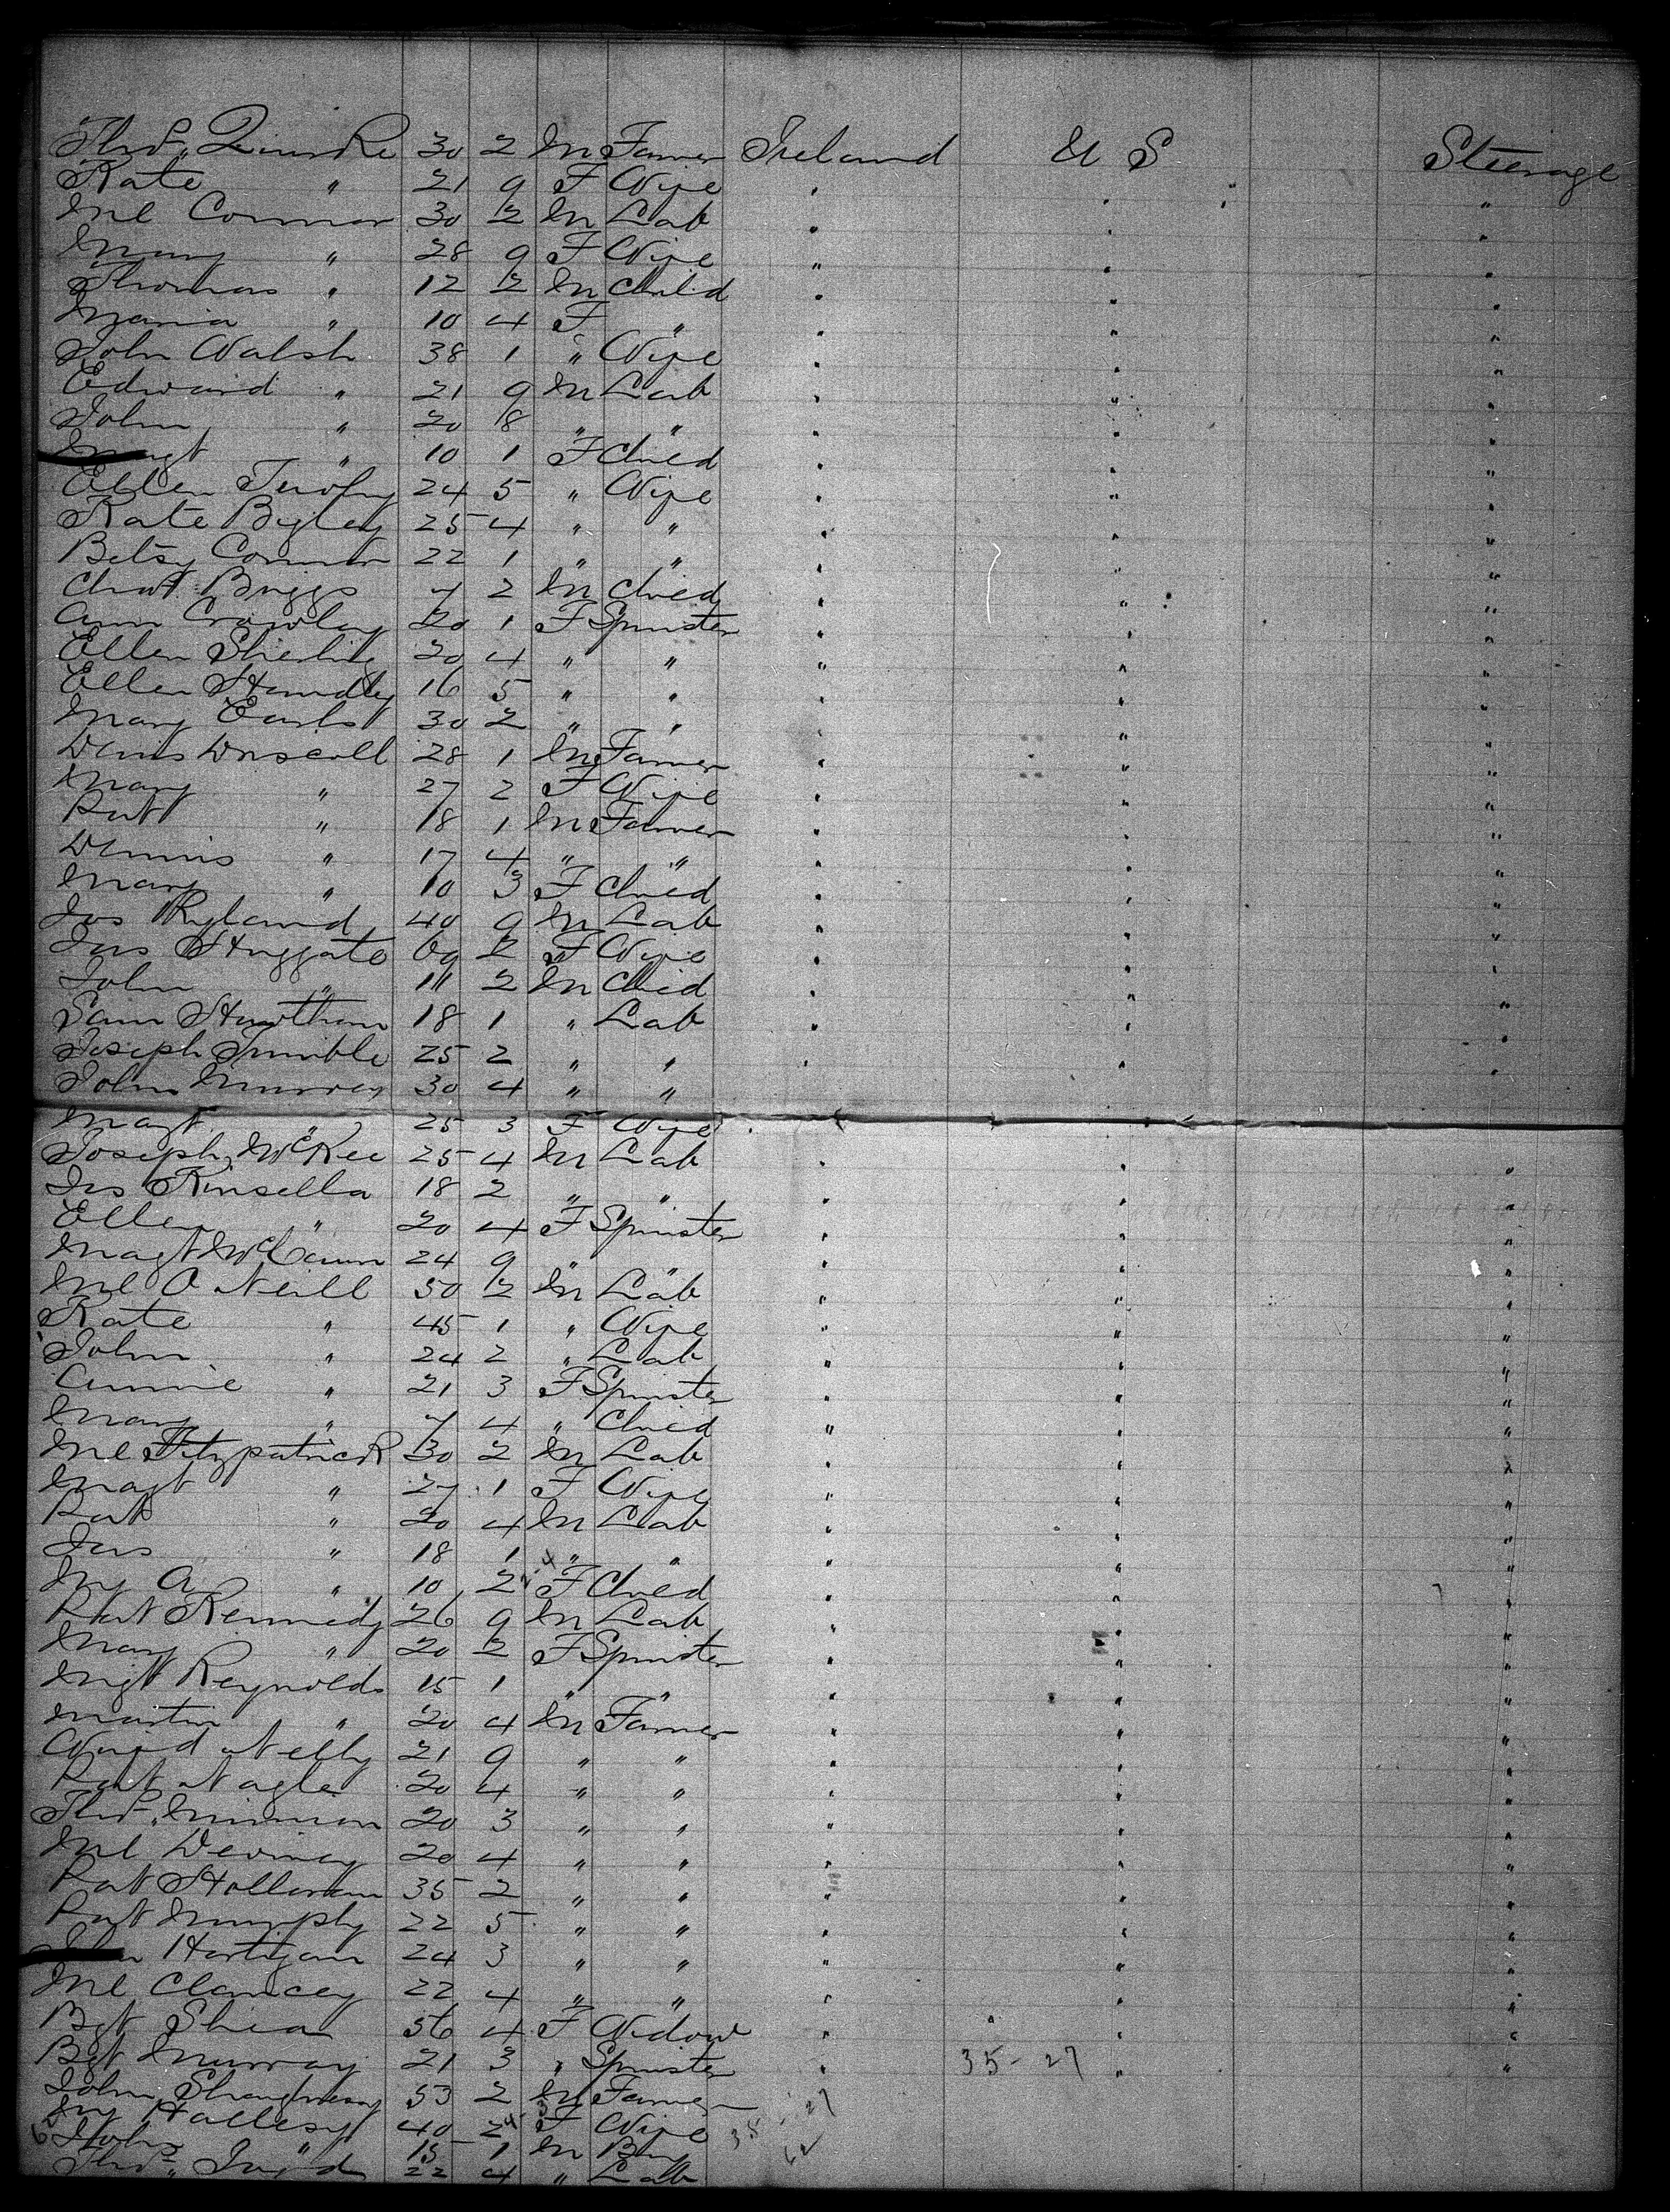 Thos. Quirke 30 2 M Farmer Ireland U S Steerage
Kate " 21 9 F Wife " " "
Ml Connor 30 2 M Lab " " "
Mary " 28 9 F Wife " " "
Thomas " 12 2 M Child " " "
Maria " 10 4 F " " " "
John Walsh 38 1 " Wife " " "
Edward " 21 9 M Lab " " "
John " 20 8 " " " " "
Magt " 10 1 F Child " " "
Ellen 24 5 " Wife " " "
Kate Bigley 25 4 " " " " "
Betsy Connor 22 1 " " " " "
Chat Briggs 7 2 M Child " " "
Ann Crowley 20 1 F Spinster " " "
Ellen 20 4 " " " " "
Ellen Handley 16 5 " " " " "
Mary Earls 30 2 " " " " "
Denis Driscoll 28 1 M Farmer " " "
Mary " 27 2 F Wife " " "
Patt " 18 1 M Farmer " " "
Dennis " 17 4 " " " " "
Mary " 10 3 F Child " " "
Jas Ryland 40 9 M Lab " " "
Jas Huggate 2 F Wife " " "
John " 11 2 M Child " " "
Sam Hawthorn 18 1 " Lab " " "
Joseph Trimble 25 2 " " " " "
John Murray 30 4 " "
Magt " 25 3 F Wife
Joseph McKee 25 4 M Lab " " "
Jas Kinsella 18 2 " " " " "
Ellen " 20 4 F Spinster " " "
Magt McCann 24 9 " " " " "
Ml O Neill 50 2 M Lab " " "
Kate " 45 1 " Wife " " "
John " 24 2 " Lab " " "
Annie " 21 3 F Spinster " " "
Mary " 7 4 " Child " " "
Ml Fitzpatrick 30 2 M Lab " " "
Magt " 27 1 F Wife " " "
Pat " 20 4 M Lab " " "
Jas " 18 1 " " " " "
My A " 10 2 F Child " " "
Pat Kennedy 26 9 M Lab " " "
Mary " 20 2 F Spinster " " "
Mgt Reynolds 15 1 " " " " "
Martin " 20 4 M Farmer " " "
Nelly 21 9 " " " " "
Pat Nagle 20 4 " " " " "
Thos. 20 3 " " " " "
Ml Deviney 20 4 " " " " "
Pat Holloran 35 2 " " " " "
Pat Murphy 22 5 " " " " "
John Hartigan 24 3 " " " " "
Ml Clancey 22 4 " " " " "
Bgt Shea 56 4 F Widow " " "
Bgt Murray 21 3 " Spinster " 35-27 " "
John Shaughnessy 53 2 M Farmer
My Hallesy 40 2 F Wife
John " 15 1 M Boy
Thos. 22 4 " Lab